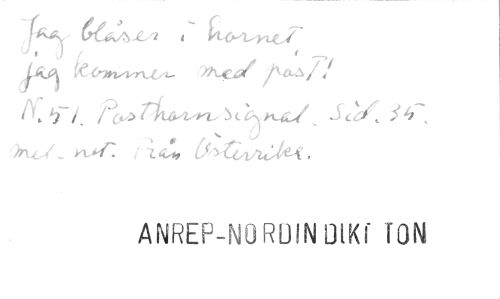 Jag blåser i hornet
jag kommer med post!
N. 51. Posthornsignal. Sid. 35.
mel. not. Från Österrike.
ANREP-NORDIN DIKT TON